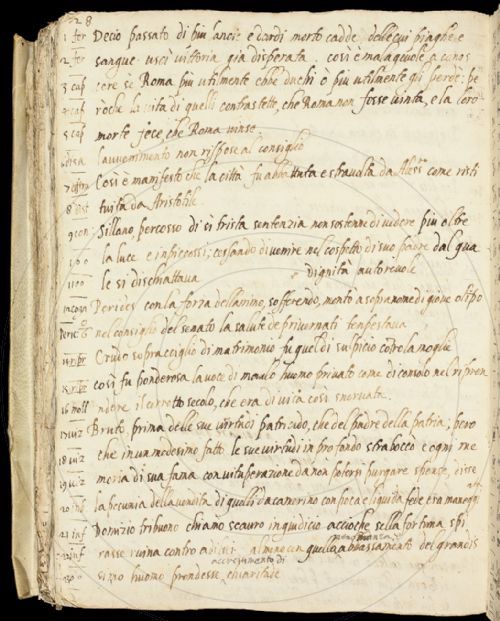 28
1 fer Decio passato di piu lancie e dardi morto cadde delle cui piaghe e
2 fer sangue uscì vittoria gia disperata. così è malageuole a conos
3 caf cere se Roma piu utilmente ebbe duchi o piu utilmente gli perde: pe
4 caf roche la uita di quelli contrastette, che Roma non fosse uinta, e la loro
5 caf morte fece che Roma uinse.
l'auuenimento non rispose al consiglio
Così è manifesto che la città fu abbattuta e sfrauata da Aless. come risti
tuita da Aristotile
9 con Sillano, percosso di sì trista sentenzia non sostenne di uedere piu oltre
la luce e inpiccossi; cessando di uenire nel cospetto di suo padre dal qua
le si dischiattaua dignità autoreuole
Pericles con la forza dell'animo, sofferendo, montò a sopranome di gioue olipo
nel consiglio del senato la salute de priuernati tempestaua
Crudo sopracciglio di matrimonio fu quel di sulpicio cotro la moglie
così fu ponderosa la uoce di manlio huomo priuato come di consolo nel ripren
16 moll ndere il corrotto secolo, che era di uita così sneruata.
17 Bruto prima delle sue uirtudi patricido, che del padre della patria; pero
18 che in un medesimo fatto le sue uirtudi in profondo straboccò e ogni me
19 moria di sua fama con uituperazione da non potersi purgare spense, disse
20 inf la pecunia della uendita di quelli da camerino con poca e liquida fede era maneggi
ata
21 inf Domizio tribuno chiamo scauro in giudicio accioche se la fortuna spi
22 inf rasse ruina contro a di lui almeno con quello abbassamento del grandis
accrescimento di
simo huomo prendesse chiaritade